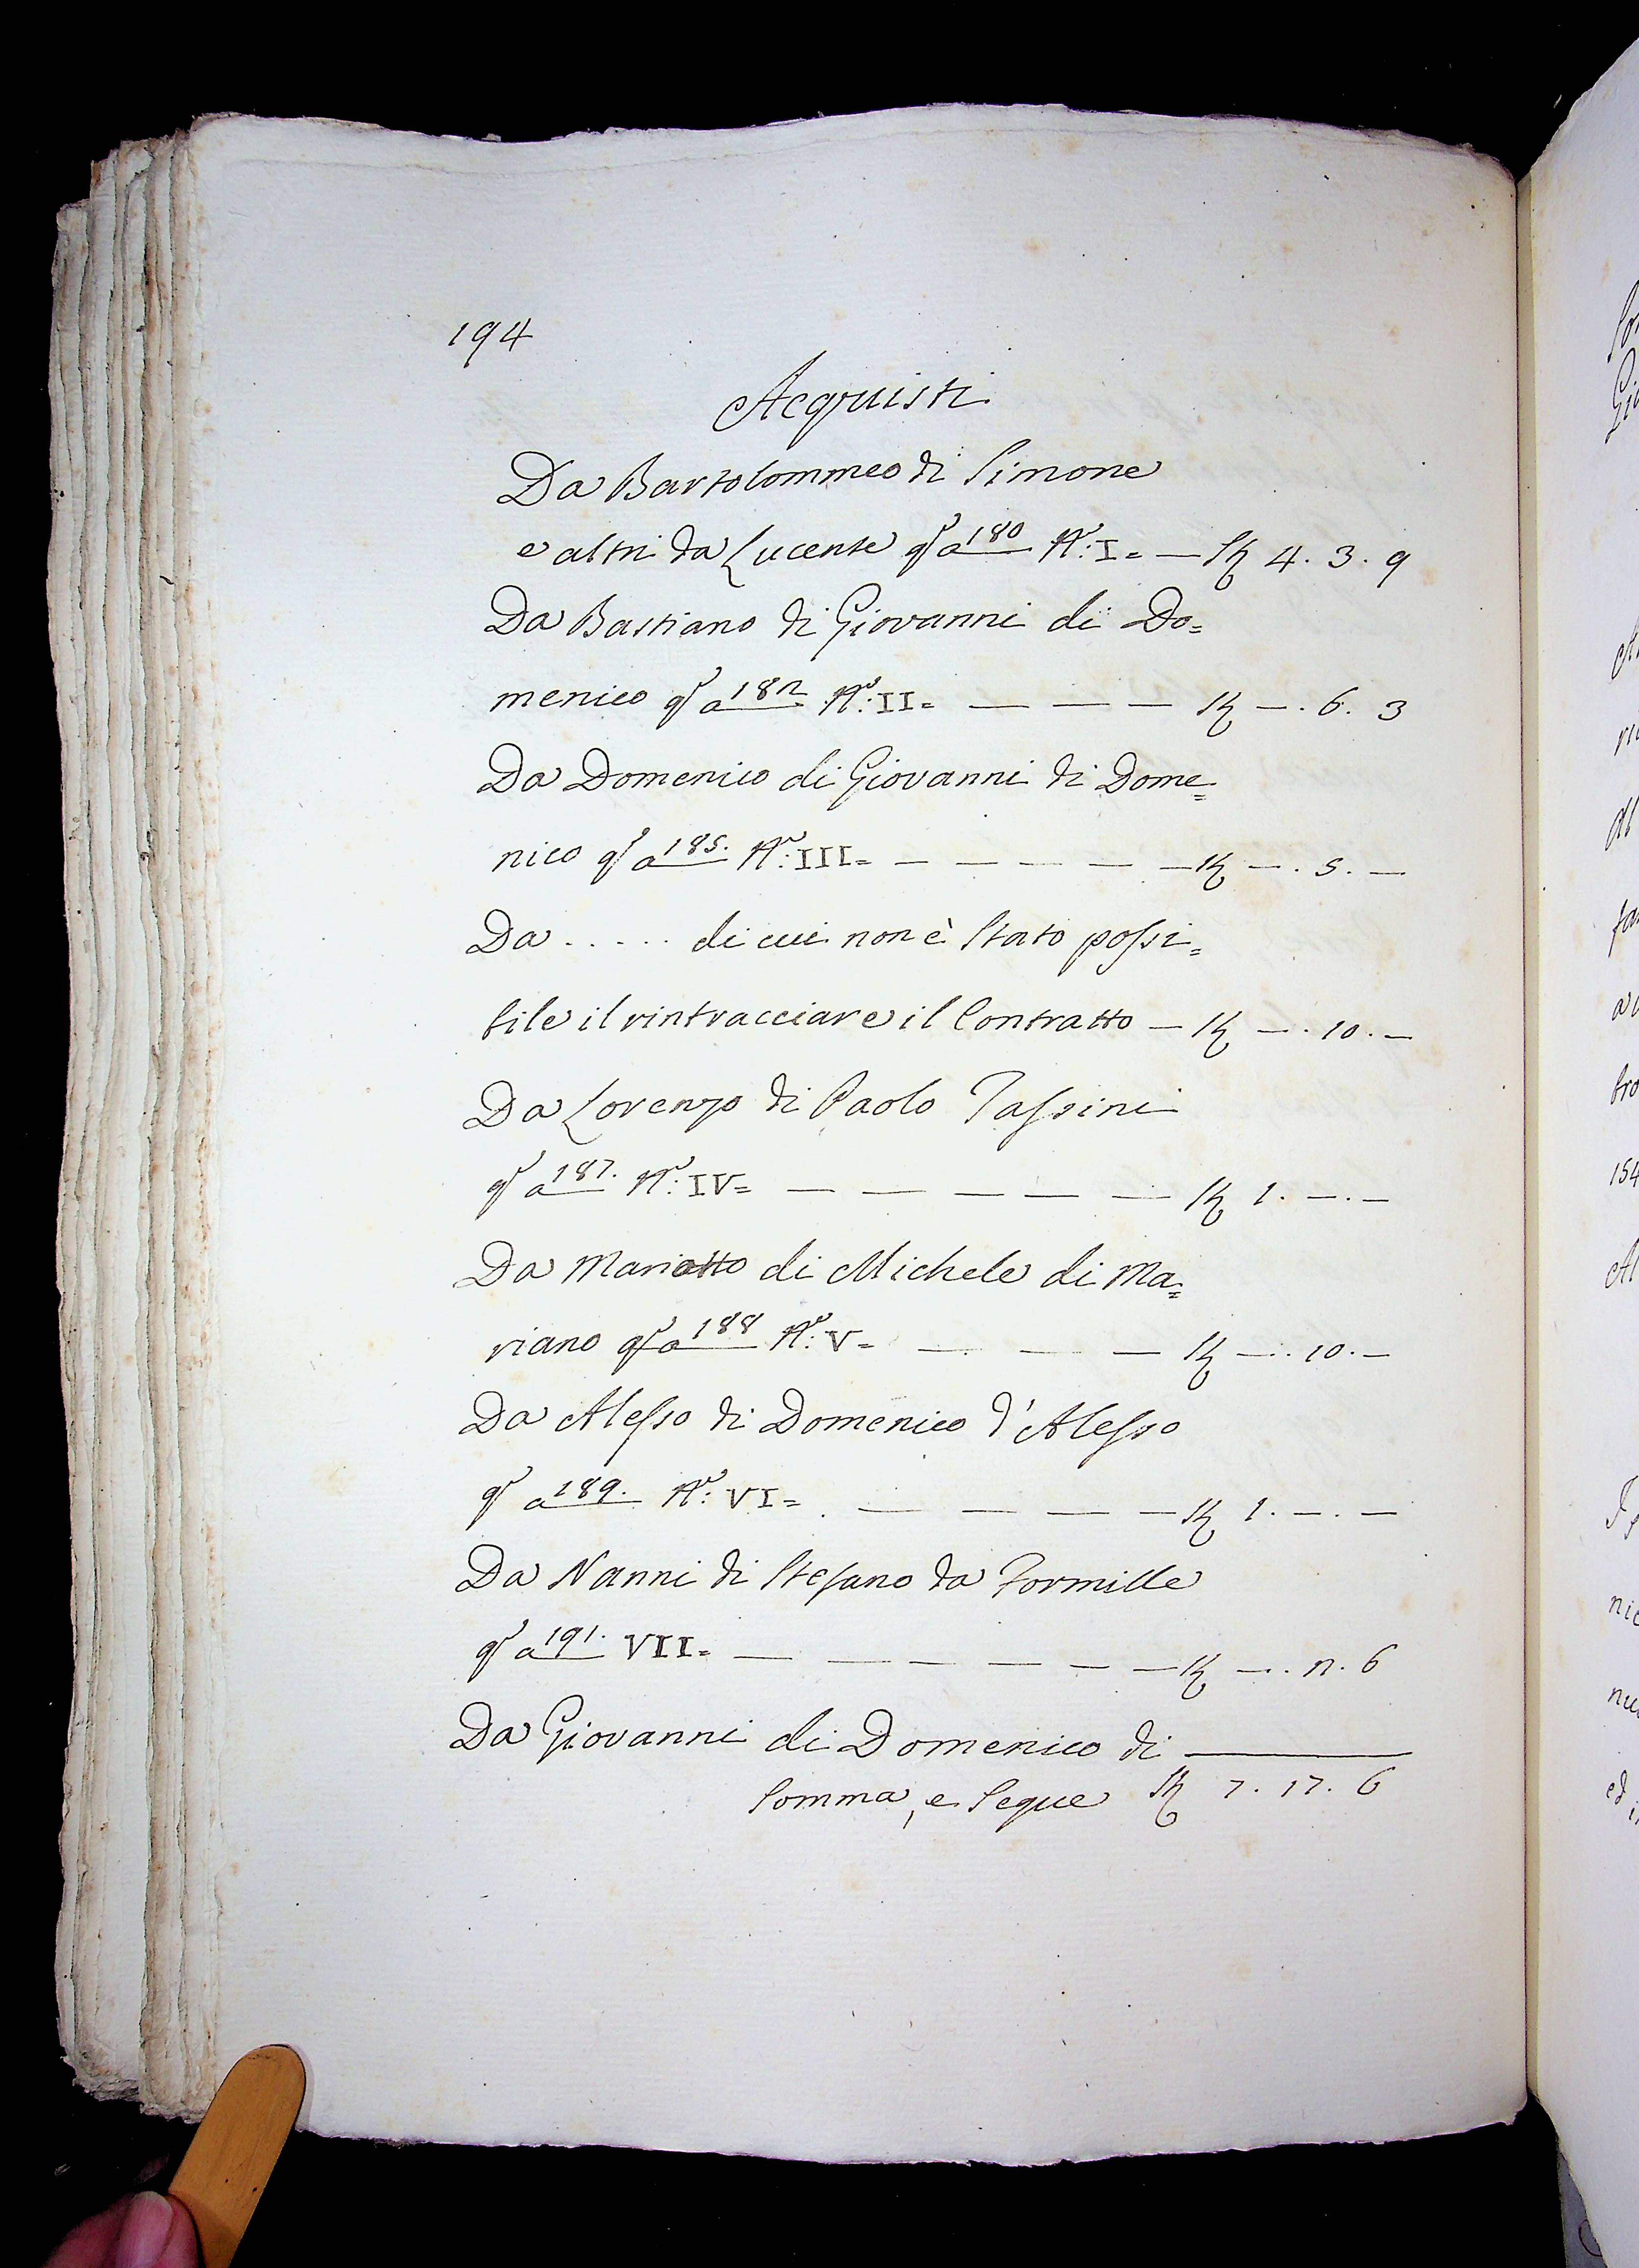 194
Acquisti
Da Bartolommeo di Simone
e altri da Lucente qº a 180 Nº: I= — St 4. 3. 9
Da Bastiano di Giovanni di Do=
menico qº a 182 Nº: II= — — — St —. 6. 3
Da Domenico di Giovanni di Dome=
nico qº a 185. Nº: III= — — — — — St —. 5. —
Da ..... di cui non è Stato possi=
bile il rintracciare il Contratto — St —. 10. —
Da Lorenzo di Paolo Tassini
qº a 187. Nº: IV= — — — — — St 1. —. —
Da Mariotto di Michele di Ma=
riano qº a 188 Nº: V= — — — St —. 10. —
Da Alesso di Domenico d'Alesso
qº a 189. Nº: VI= — — — — St 1. —. —
Da Nanni di Stefano da Tormille
qº a 191. VII= — — — — — — St —. 2. 6
Da Giovanni di Domenico di
Somma, e Segue St 7. 17. 6